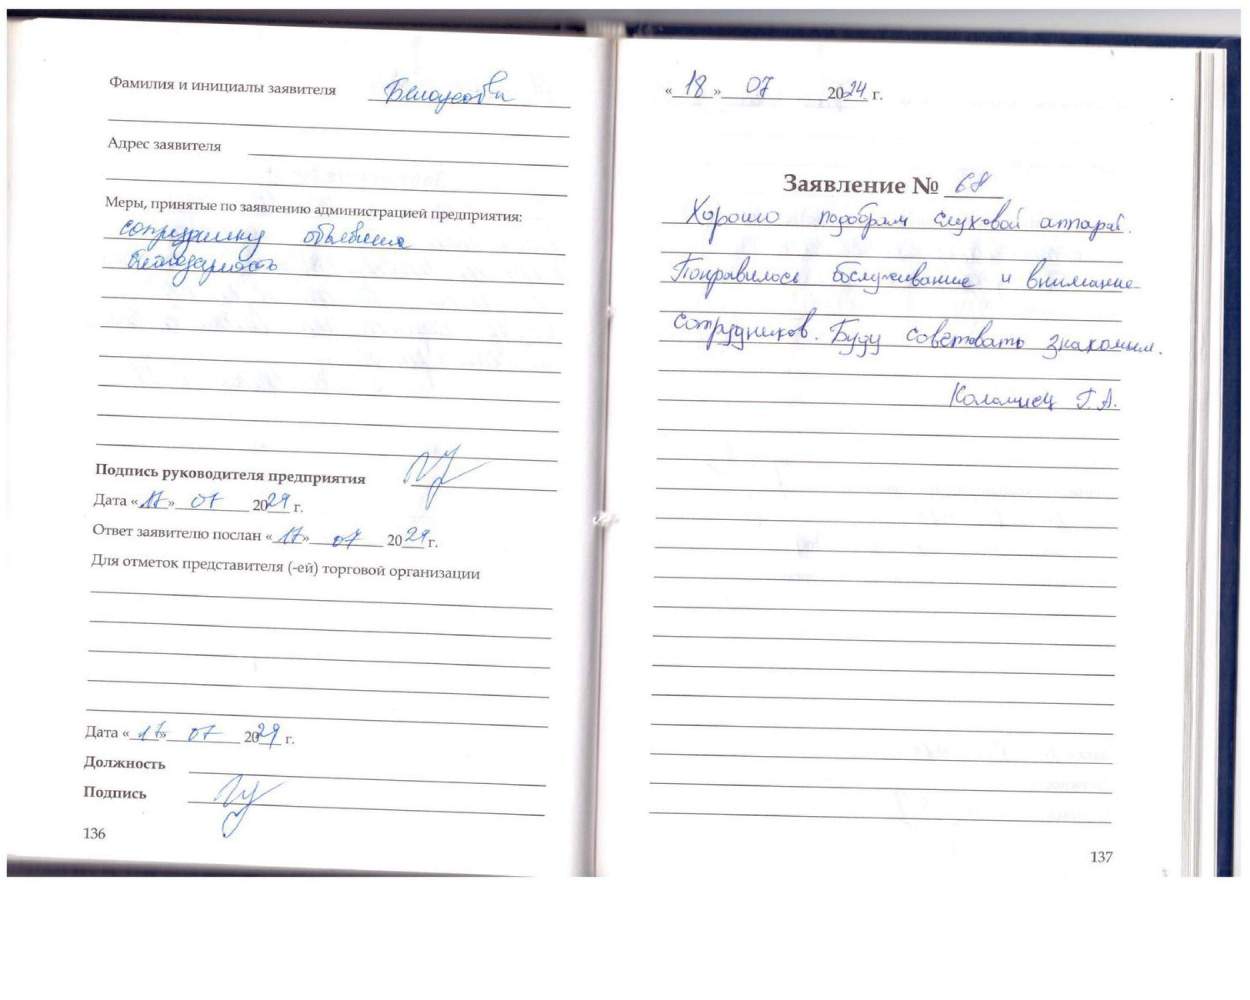 Фамилия и инициалы заявителя
Адрес заявителя
Меры, принятые по заявлению администрацией предприятия:
сотруднику объявлена
благодарность
Подпись руководителя предприятия
Дата «17» 07 2024 г.
Ответ заявителю послан «17» 07 2024 г.
Для отметок представителя (-ей) торговой организации
Дата «17» 07 2024 г.
Должность
Подпись
136
«18» 07 2024 г.
Заявление № 68
Хорошо подобрали слуховой аппарат.
Понравилось обслуживание и внимание
сотрудников. Буду советовать знакомым.
Коломиец Г.А.
137